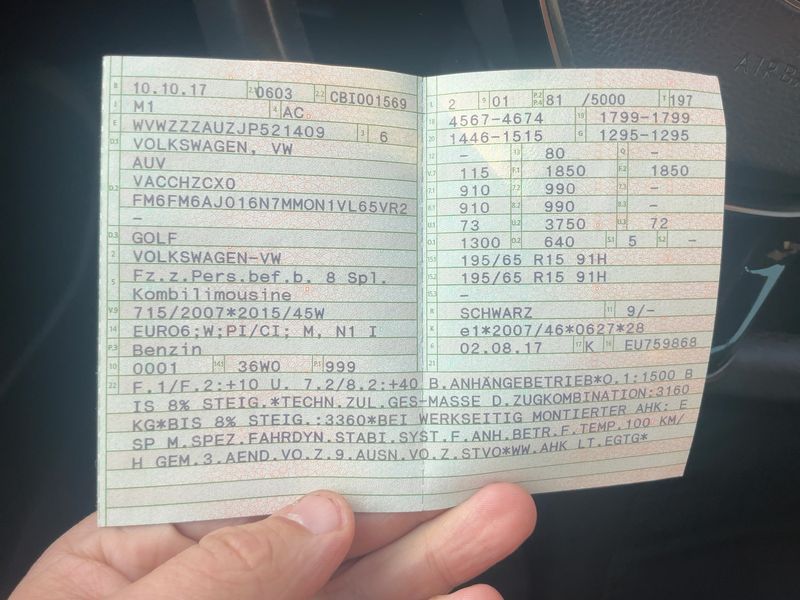 B 10.10.17 2.1 0603 2.2 CBI001569
J M1 4 AC
E WVWZZZAUZJP521409 3 6
D.1 VOLKSWAGEN, VW
AUV
D.2 VACCHZCX0
FM6FM6AJ016N7MMON1VL65VR2
–
D.3 GOLF
2 VOLKSWAGEN-VW
5 Fz.z.Pers.bef.b. 8 Spl.
Kombilimousine
V.9 715/2007*2015/45W
14 EURO6;W;PI/CI; M, N1 I
P.3 Benzin
10 0001 14.1 36W0 P.1 999
L 2 9 01 P.2 P.4 81 /5000 T 197
18 4567-4674 19 1799-1799
20 1446-1515 G 1295-1295
12 – 13 80 Q –
V.7 115 F.1 1850 F.2 1850
7.1 910 7.2 990 7.3 –
8.1 910 8.2 990 8.3 –
U.1 73 U.2 3750 U.3 72
O.1 1300 O.2 640 S.1 5 S.2 –
15.1 195/65 R15 91H
15.2 195/65 R15 91H
15.3 –
R SCHWARZ 11 9/–
K e1*2007/46*0627*28
6 02.08.17 17 K 16 EU759868
21
22 F.1/F.2:+10 U. 7.2/8.2:+40 B.ANHÄNGEBETRIEB*O.1:1500 B
IS 8% STEIG.*TECHN.ZUL.GES-MASSE D.ZUGKOMBINATION:3160
KG*BIS 8% STEIG.:3360*BEI WERKSEITIG MONTIERTER AHK: E
SP M.SPEZ.FAHRDYN.STABI.SYST.F.ANH.BETR.F.TEMP.100 KM/
H GEM.3.AEND.VO.Z.9.AUSN.VO.Z.STVO*WW.AHK LT.EGTG*
AIRB